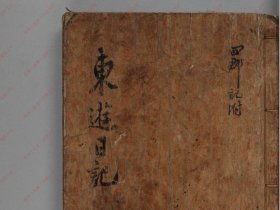 東遊日記
四郡記附